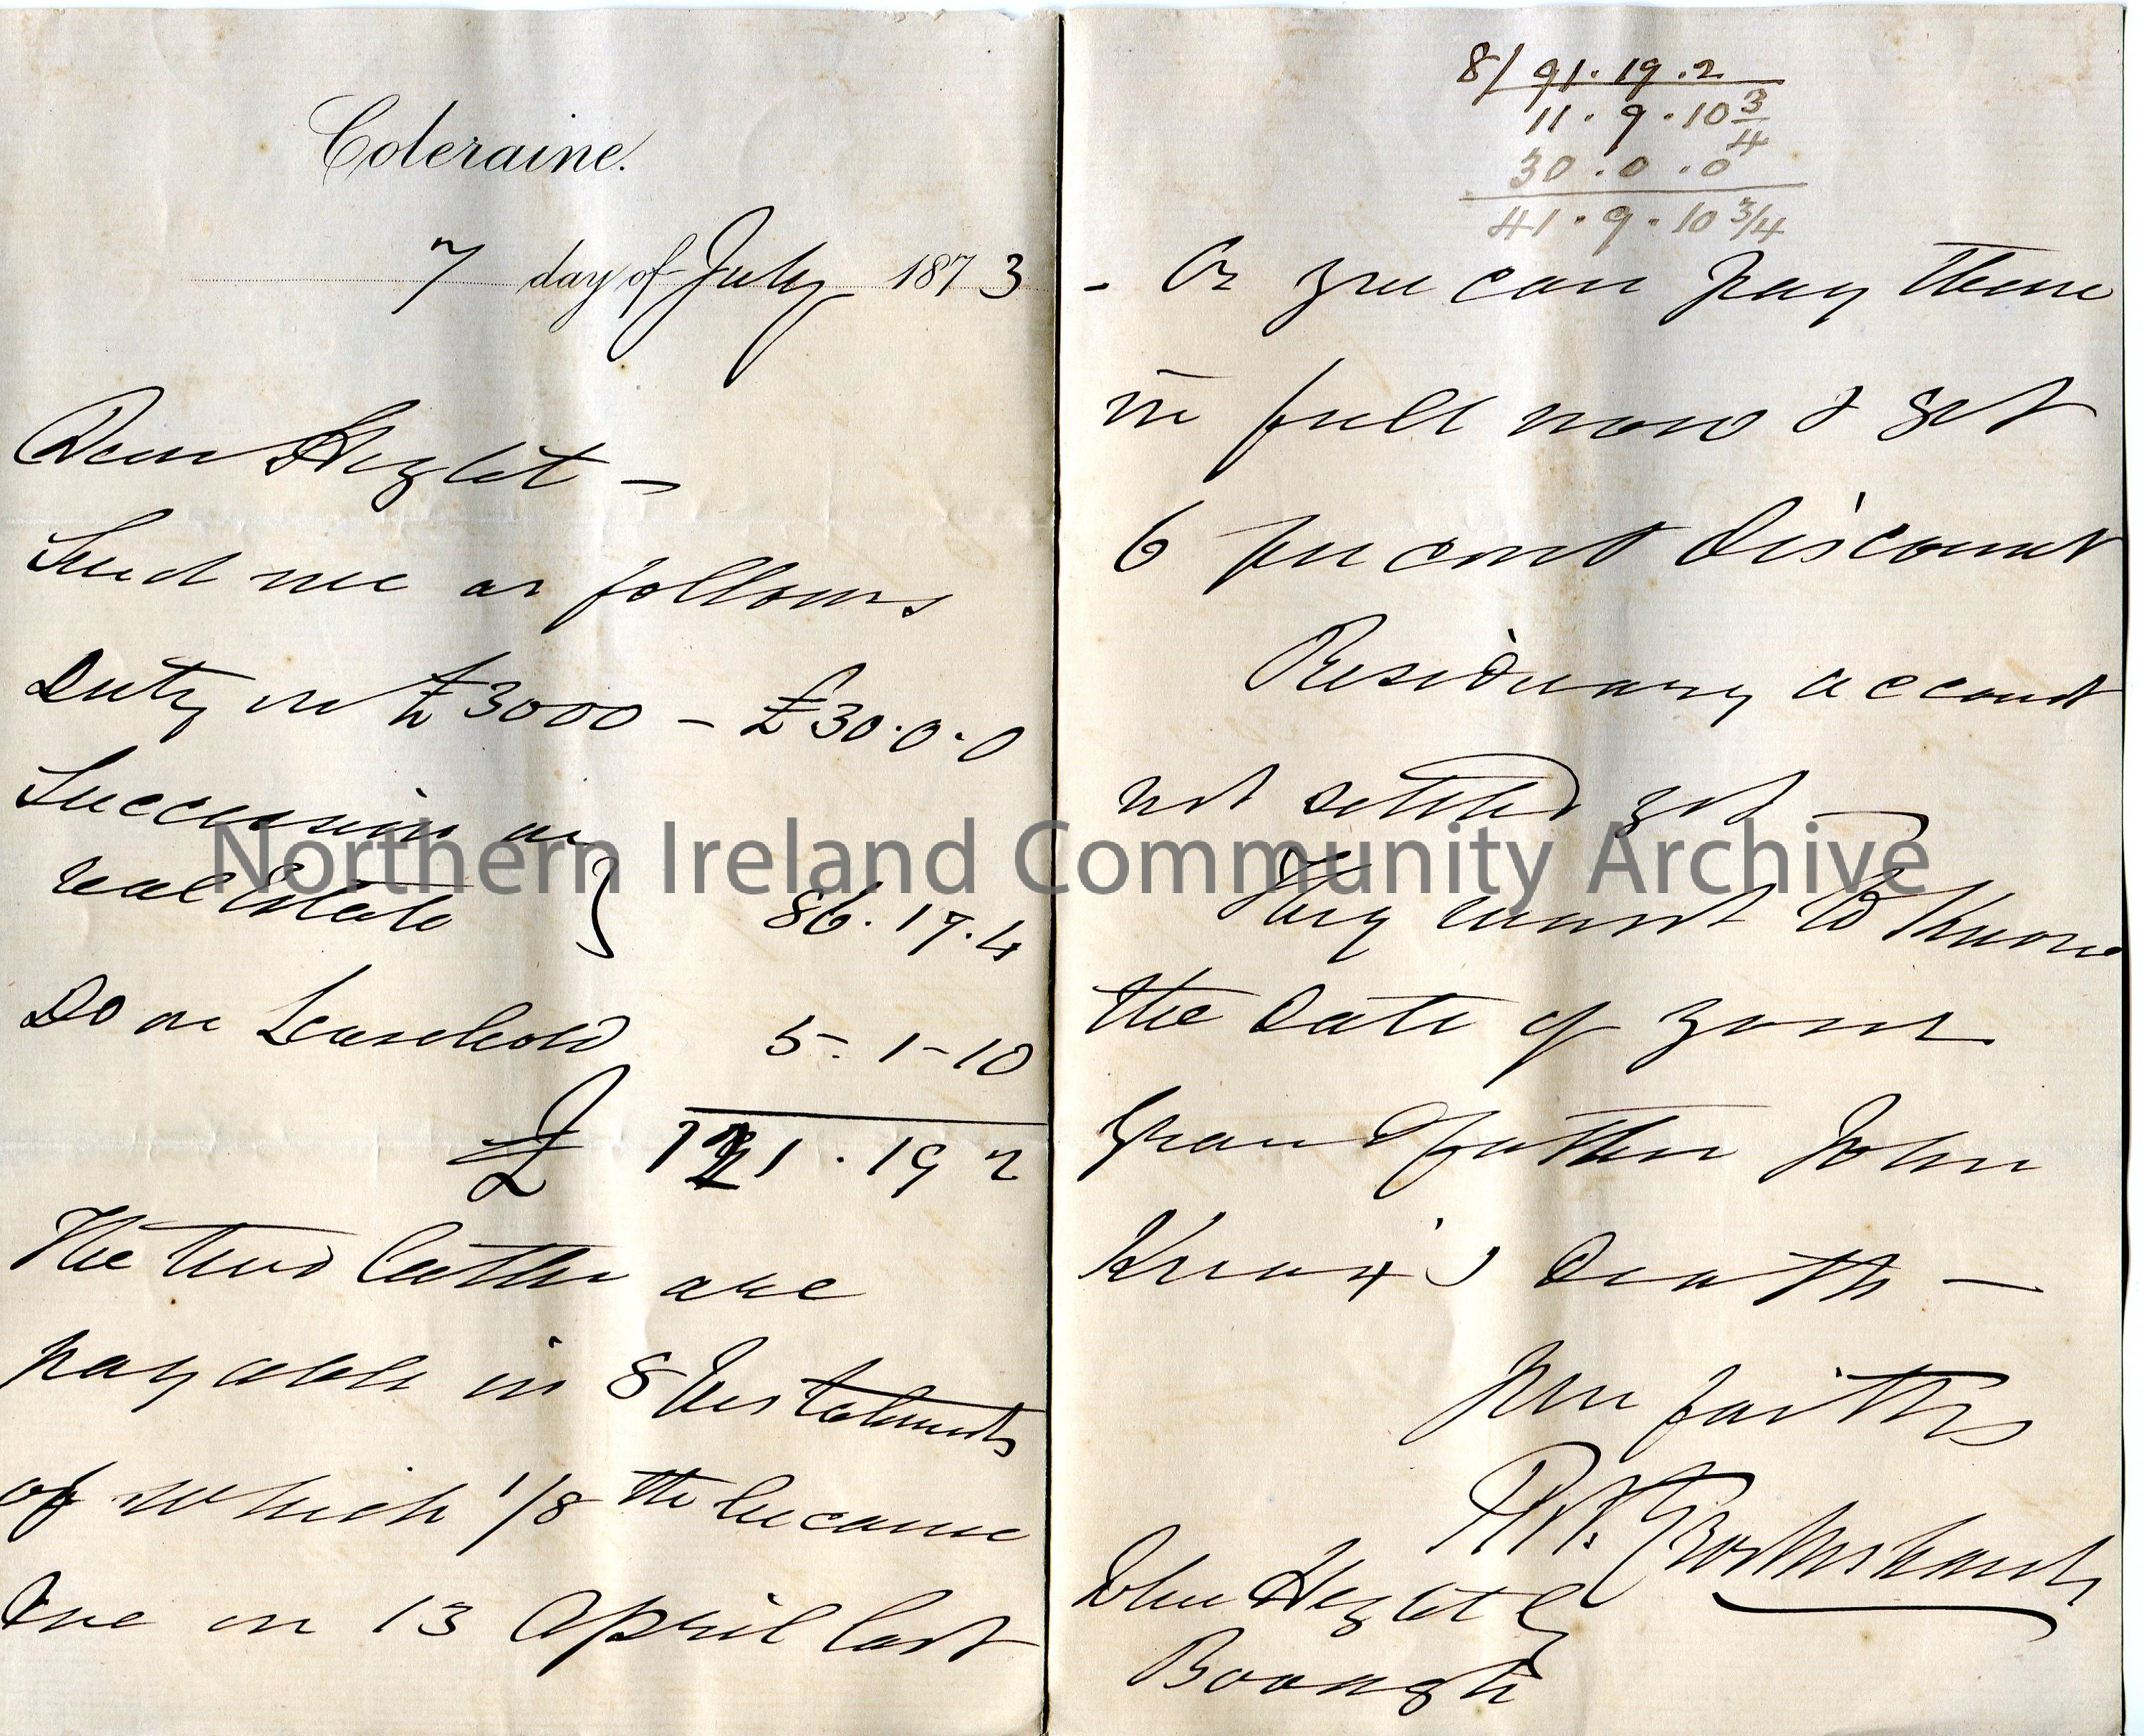 Coleraine.
7 day of July 1873
Dear Hezlet -
Send me as follows
Duty on £3000 - £30.0.0
Succession on
real Estate } 86.17.4
Do on Leasehold 5-1-10
£ 121.19 2
The two latter are
payable in 8 Instalments
of which 1/8 th became
due on 13 April last
8/ 91.19.2
11.9.10 3/4
30.0.0
41.9.10 3/4
- Or you can pay them
in full now & get
6 per cent discount
Residuary account
not settled yet -
They want to know
the date of your
Grandfather John
Knox's death -
yrs faithfs
John Hezlet Esq
Bovagh
Northern Ireland Community Archive